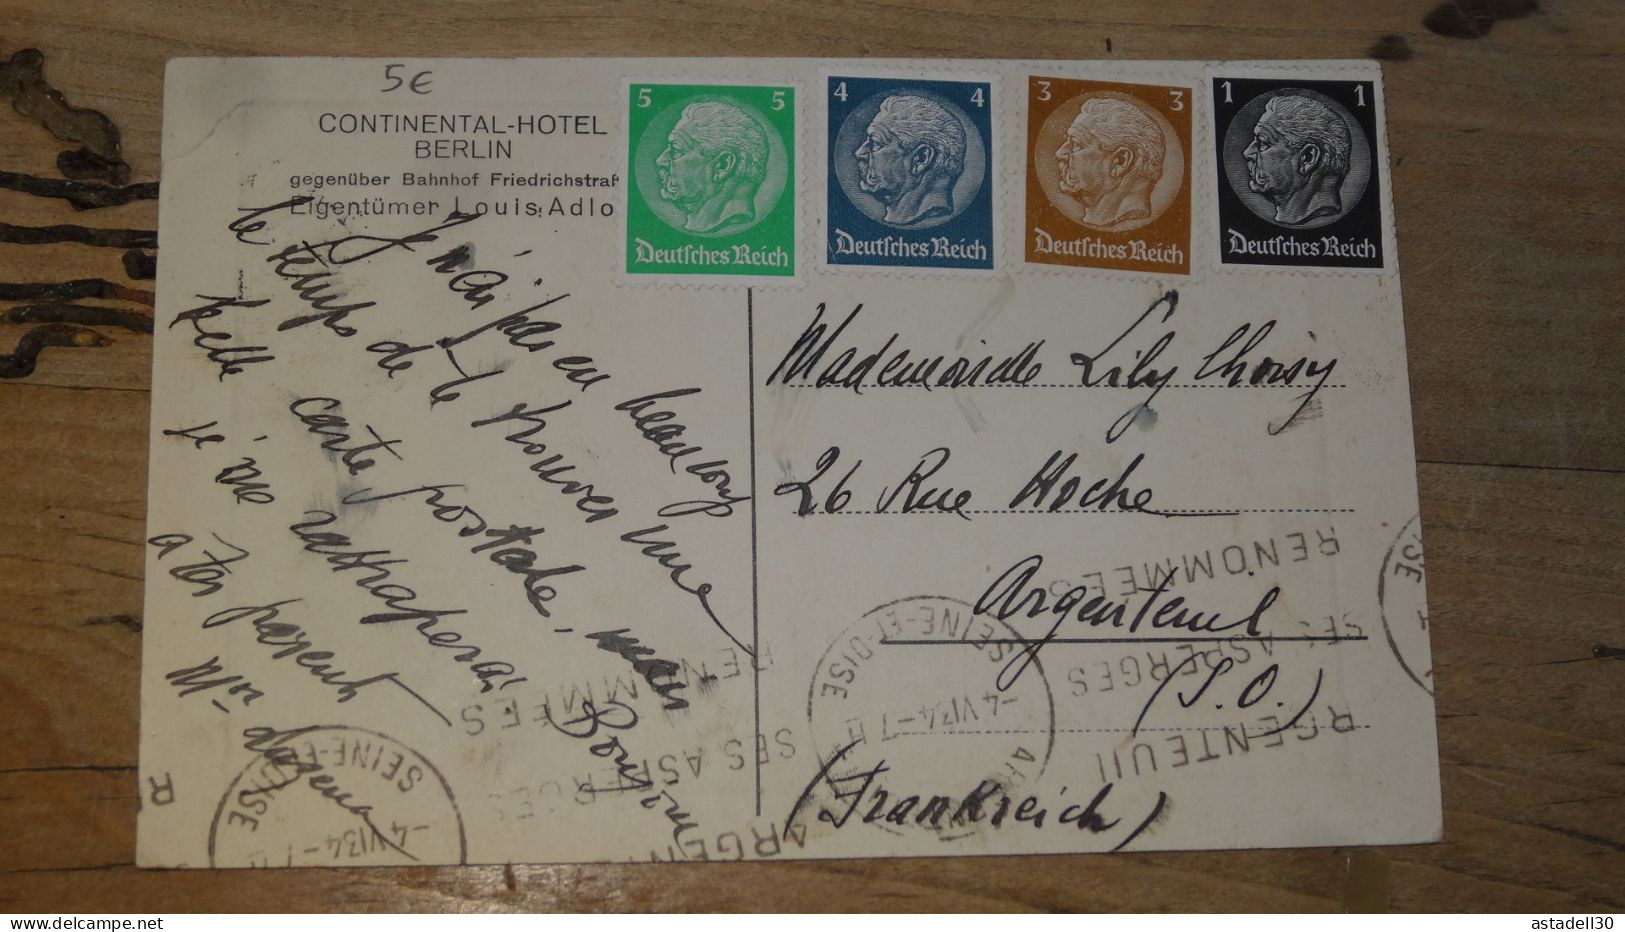 5€
CONTINENTAL-HOTEL
BERLIN
gegenüber Bahnhof Friedrichstraß
Eigentümer Louis Adlo
5 5
Deutsches Reich
4 4
Deutsches Reich
3 3
Deutsches Reich
1 1
Deutsches Reich
Je n'ai pas eu beaucoup
le temps de te trouver une
belle carte postale, mais
je me rattraperai.
a tes parents
Mademoiselle Lily Choisy
26 Rue Hoche
Argenteuil
(S.O.)
(Frankreich)
RGENTEUIL
SES ASPERGES
RENOMMÉES
SEINE-ET-OISE
-4 VI 34-7
ARGENTEU
SES ASPERGES
RENOMMÉES
SEINE-E OISE
-4 VI 34-7
R